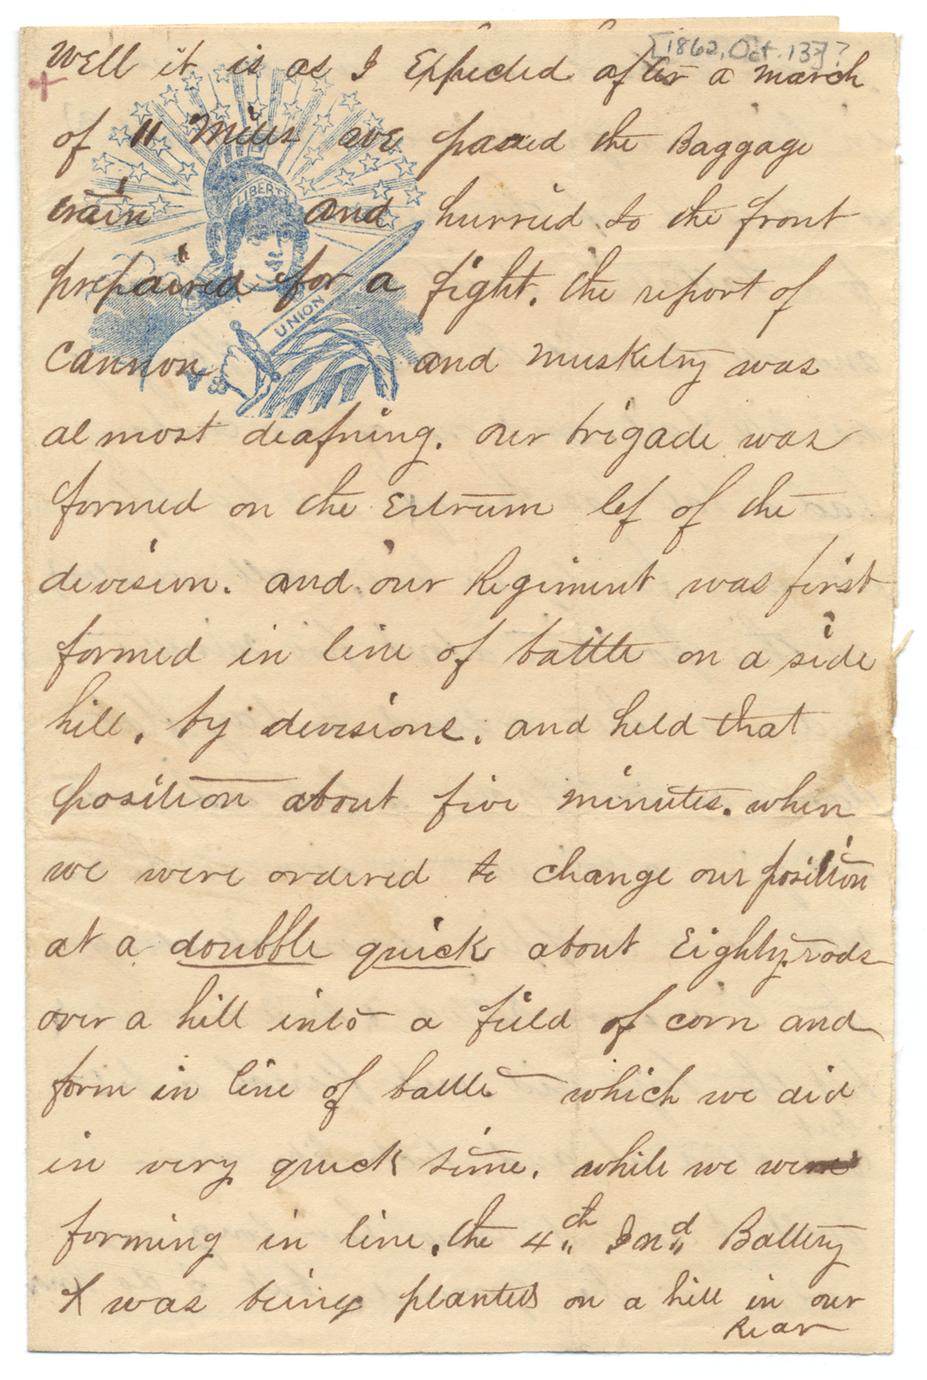 [1862, Oct. 13]?
Well it is as I Expected after a march
of 11 Miles we passed the Baggage
train and hurried to the front
prepaired for a fight. the report of
Cannon and Musketry was
almost deafning. our brigade was
formed on the Extrum lef of the
devision. and our Regiment was first
formed in line of battle on a side
hill, by devisions. and held that
position about five minutes. when
we were ordered to change our position
at a doubble quick about Eighty rods
over a hill into a field of corn and
form in line of battle which we did
in very quick time. while we were
forming in line, the 4th Ind Battery
X was being planted on a hill in our
Rear
LIBERTY
UNION